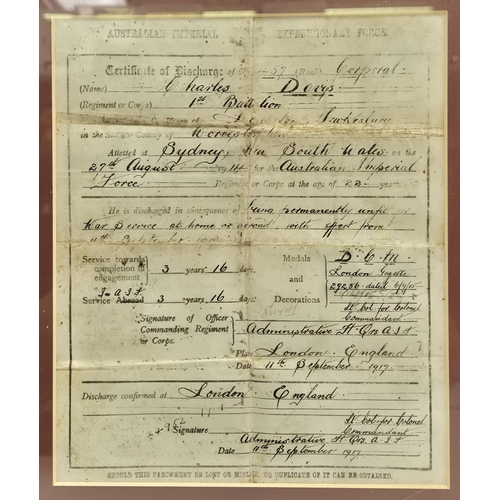 AUSTRALIAN IMPERIAL EXPEDITIONARY FORCE
Certificate of Discharge of 37 (Rank) Corporal
(Name) Charles Doorys
(Regiment or Corps) 1st Battalion
Tewkesbury
in the County of Worcester
Attested at Sydney, New South Wales on the
27th August 1914 for the Australian Imperial
Force Regiment or Corps at the age of 22 years.
He is discharged in consequence of being permanently unfit for
War Service at home or abroad with effect from
11th September 1917
Service towards completion of engagement 3 years 16 days.
In A I F
Service Abroad 3 years 16 days.
Medals and Decorations
D.C.M
London Gazette
29256 dated
Lt Col for Colonel
Commandant
Signature of Officer
Commanding Regiment
or Corps.
Administrative Hd Qrs A.I.F
Place London England
Date 11th September 1917.
Discharge confirmed at London England
Lt Col for Colonel
Commandant
Signature
Administrative Hd Qrs A.I.F
Date 11th September 1917
SHOULD THIS PARCHMENT BE LOST OR MISLAID NO DUPLICATE OF IT CAN BE OBTAINED.